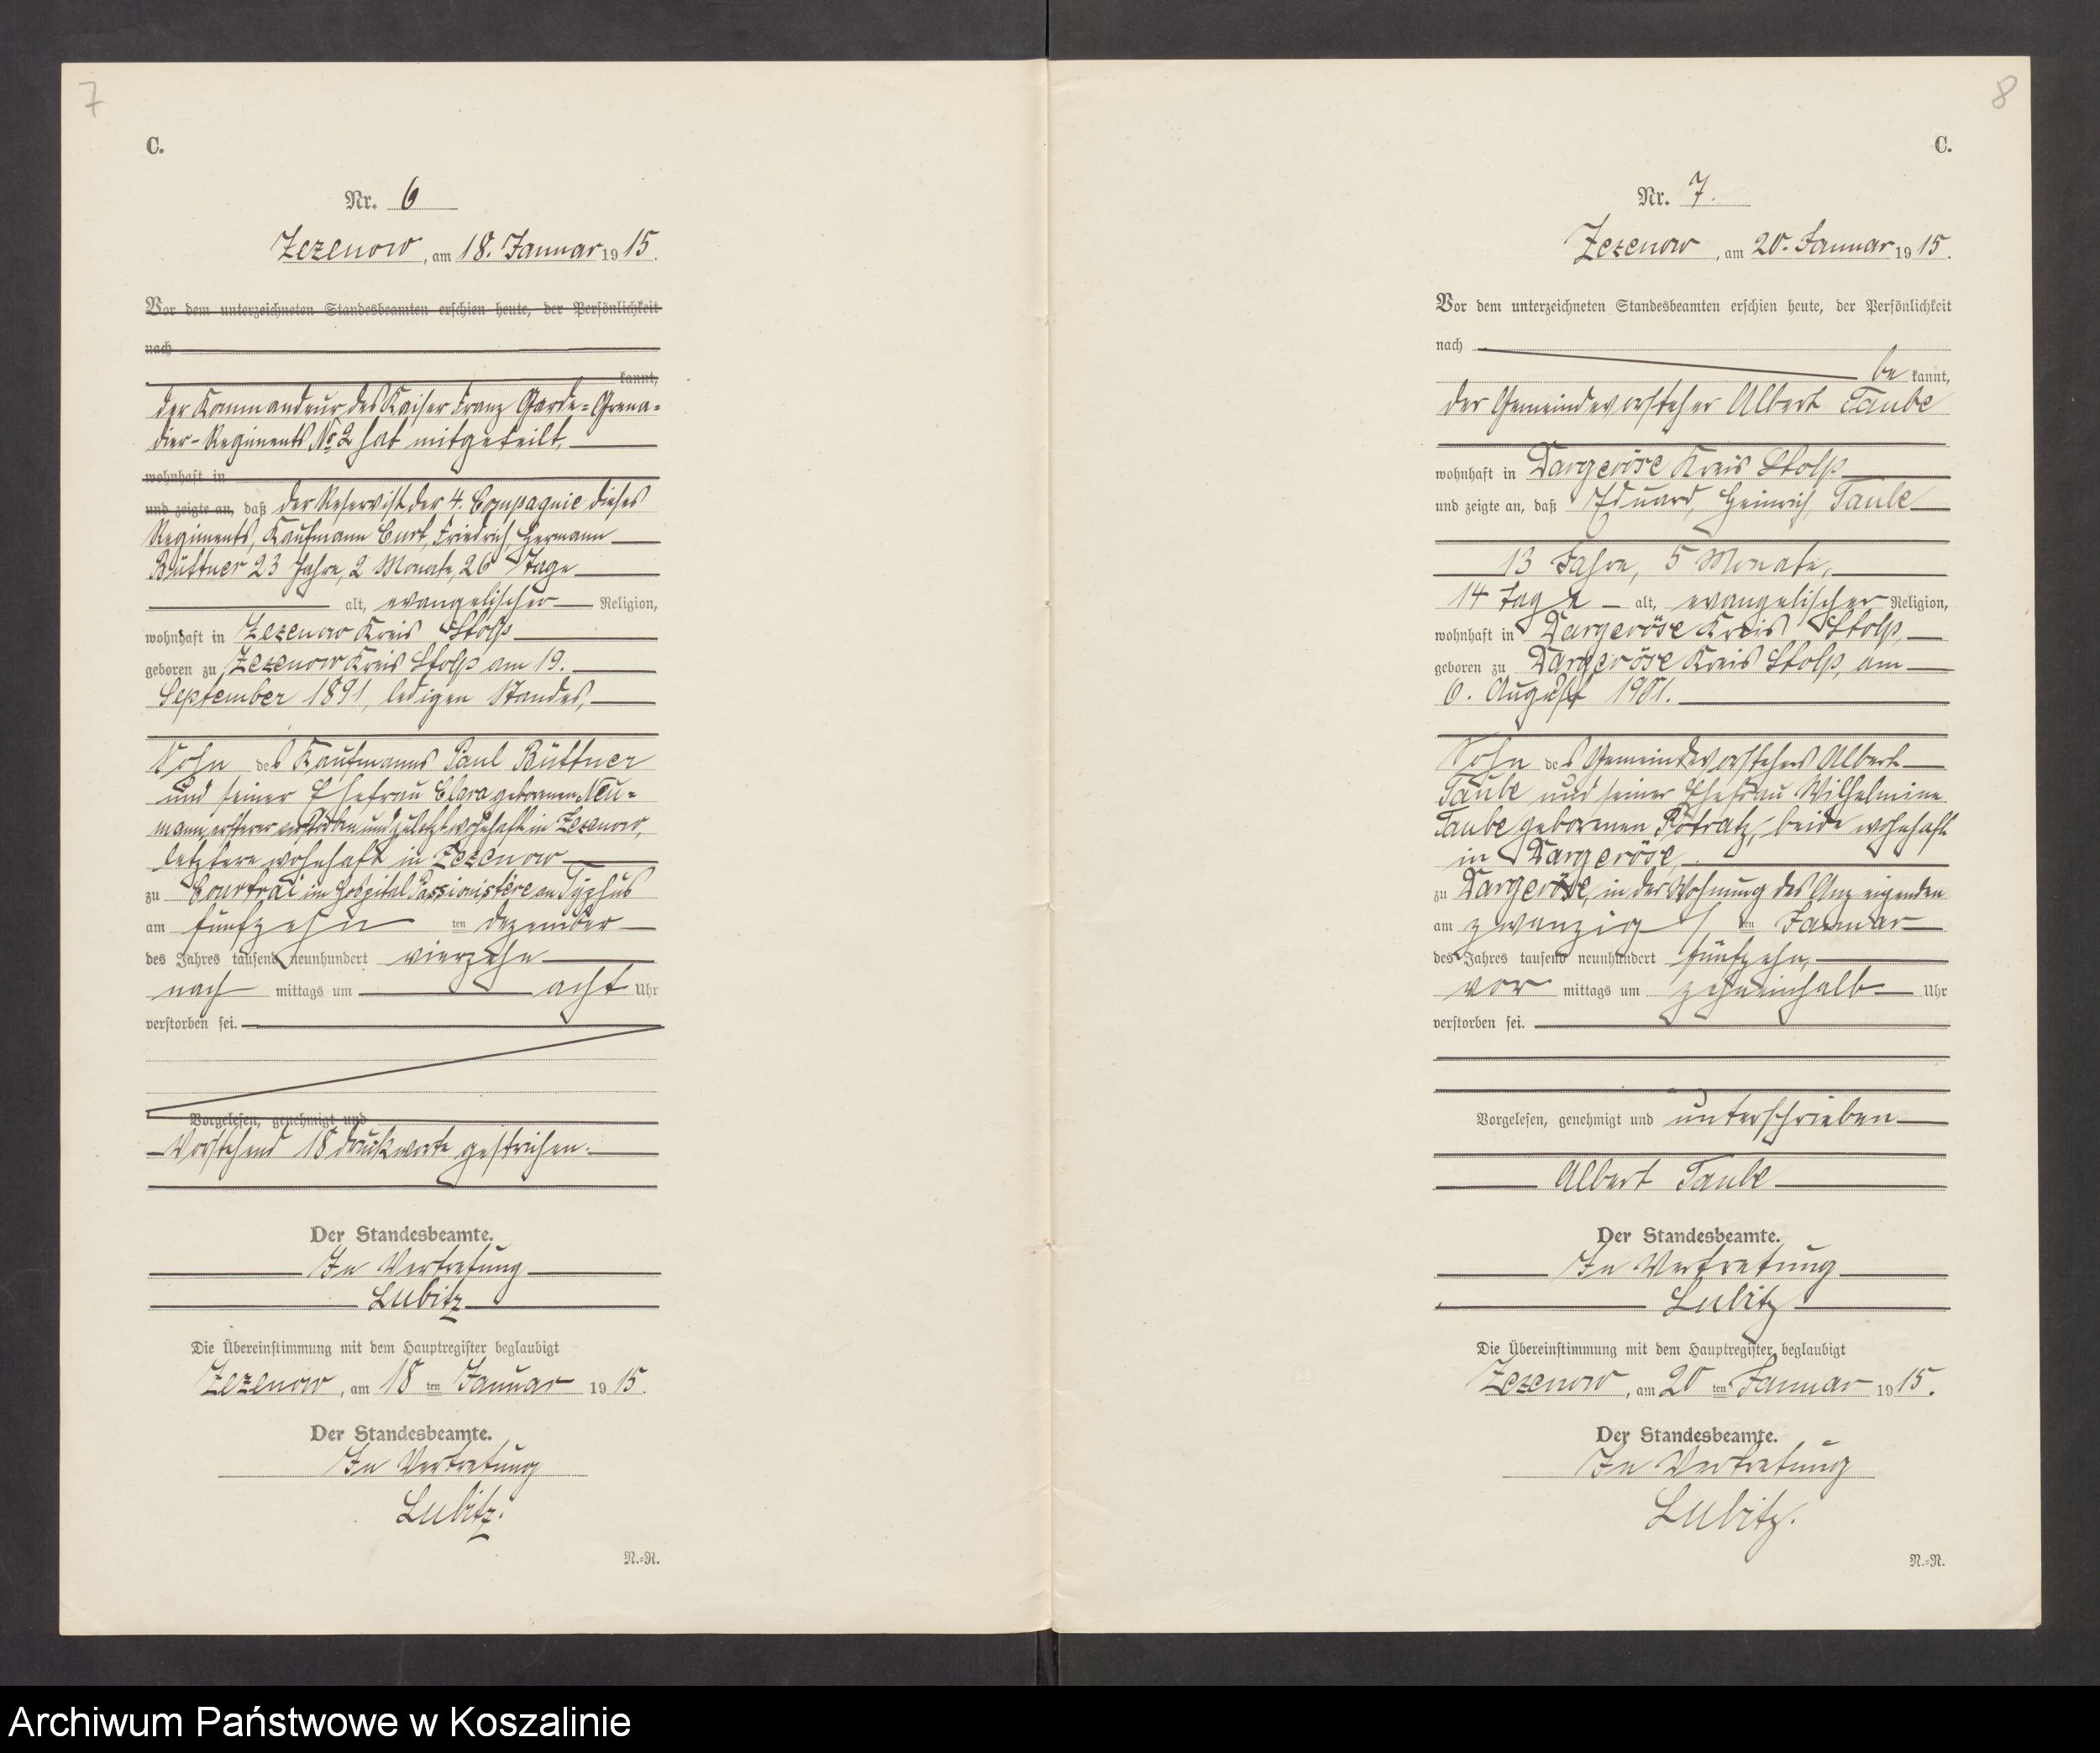 7
C.
Nr. 6
Zezenow, am 18. Januar 1915.
Vor dem unterzeichneten Standesbeamten erschien heute, der Persönlichkeit
nach
kannt,
der Kommandeur des Kaiser Franz Garde-Grena-
dier-Regiments No 2 hat mitgeteilt,
wohnhaft in
und zeigte an, daß der Reservist der 4. Compagnie dieses
Regiments, Kaufmann Curt, Friedrich, Hermann
Büttner 23 Jahre, 2 Monate, 26 Tage
alt, evangelischer Religion,
wohnhaft in Zezenow Kreis Stolp
geboren zu Zezenow Kreis Stolp am 19.
September 1891, ledigen Standes,
Sohn des Kaufmanns Paul Büttner
und seiner Ehefrau Clara geborenen Neu-
mann, ersterer verstorben und zuletzt wohnhaft in Zezenow,
letztere wohnhaft in Zezenow
zu Courtrai im Hospital Passionistère an Typhus
am fünfzehn ten Dezember
des Jahres tausend neunhundert vierzehn
nach mittags um acht Uhr
verstorben sei.
Vorgelesen, genehmigt und
Vorstehend 18 Druckworte gestrichen.
Der Standesbeamte.
In Vertretung
Lubitz
Die Übereinstimmung mit dem Hauptregister beglaubigt
Zezenow, am 18 ten Januar 1915.
Der Standesbeamte.
In Vertretung
Lubitz.
N.-R.
8
C.
Nr. 7.
Zezenow, am 20. Januar 1915.
Vor dem unterzeichneten Standesbeamten erschien heute, der Persönlichkeit
nach
be kannt,
der Gemeindevorsteher Albert Taube
wohnhaft in Dargeröse Kreis Stolp
und zeigte an, daß Eduard, Heinrich Taube
13 Jahre, 5 Monate,
14 Tage alt, evangelischer Religion,
wohnhaft in Dargeröse Kreis Stolp,
geboren zu Dargeröse Kreis Stolp, am
6. August 1901.
Sohn des Gemeindevorstehers Albert
Taube und seiner Ehefrau Wilhelmine
Taube geborenen Potratz, beide wohnhaft
in Dargeröse,
zu Dargeröse, in der Wohnung des Anzeigenden
am zwanzigs ten Januar
des Jahres tausend neunhundert fünfzehn,
vor mittags um zehneinhalb Uhr
verstorben sei.
Vorgelesen, genehmigt und unterschrieben
Albert Taube
Der Standesbeamte.
In Vertretung
Lubitz
Die Übereinstimmung mit dem Hauptregister beglaubigt
Zezenow, am 20 ten Januar 1915.
Der Standesbeamte.
In Vertretung
Lubitz.
N.-R.
Archiwum Państwowe w Koszalinie